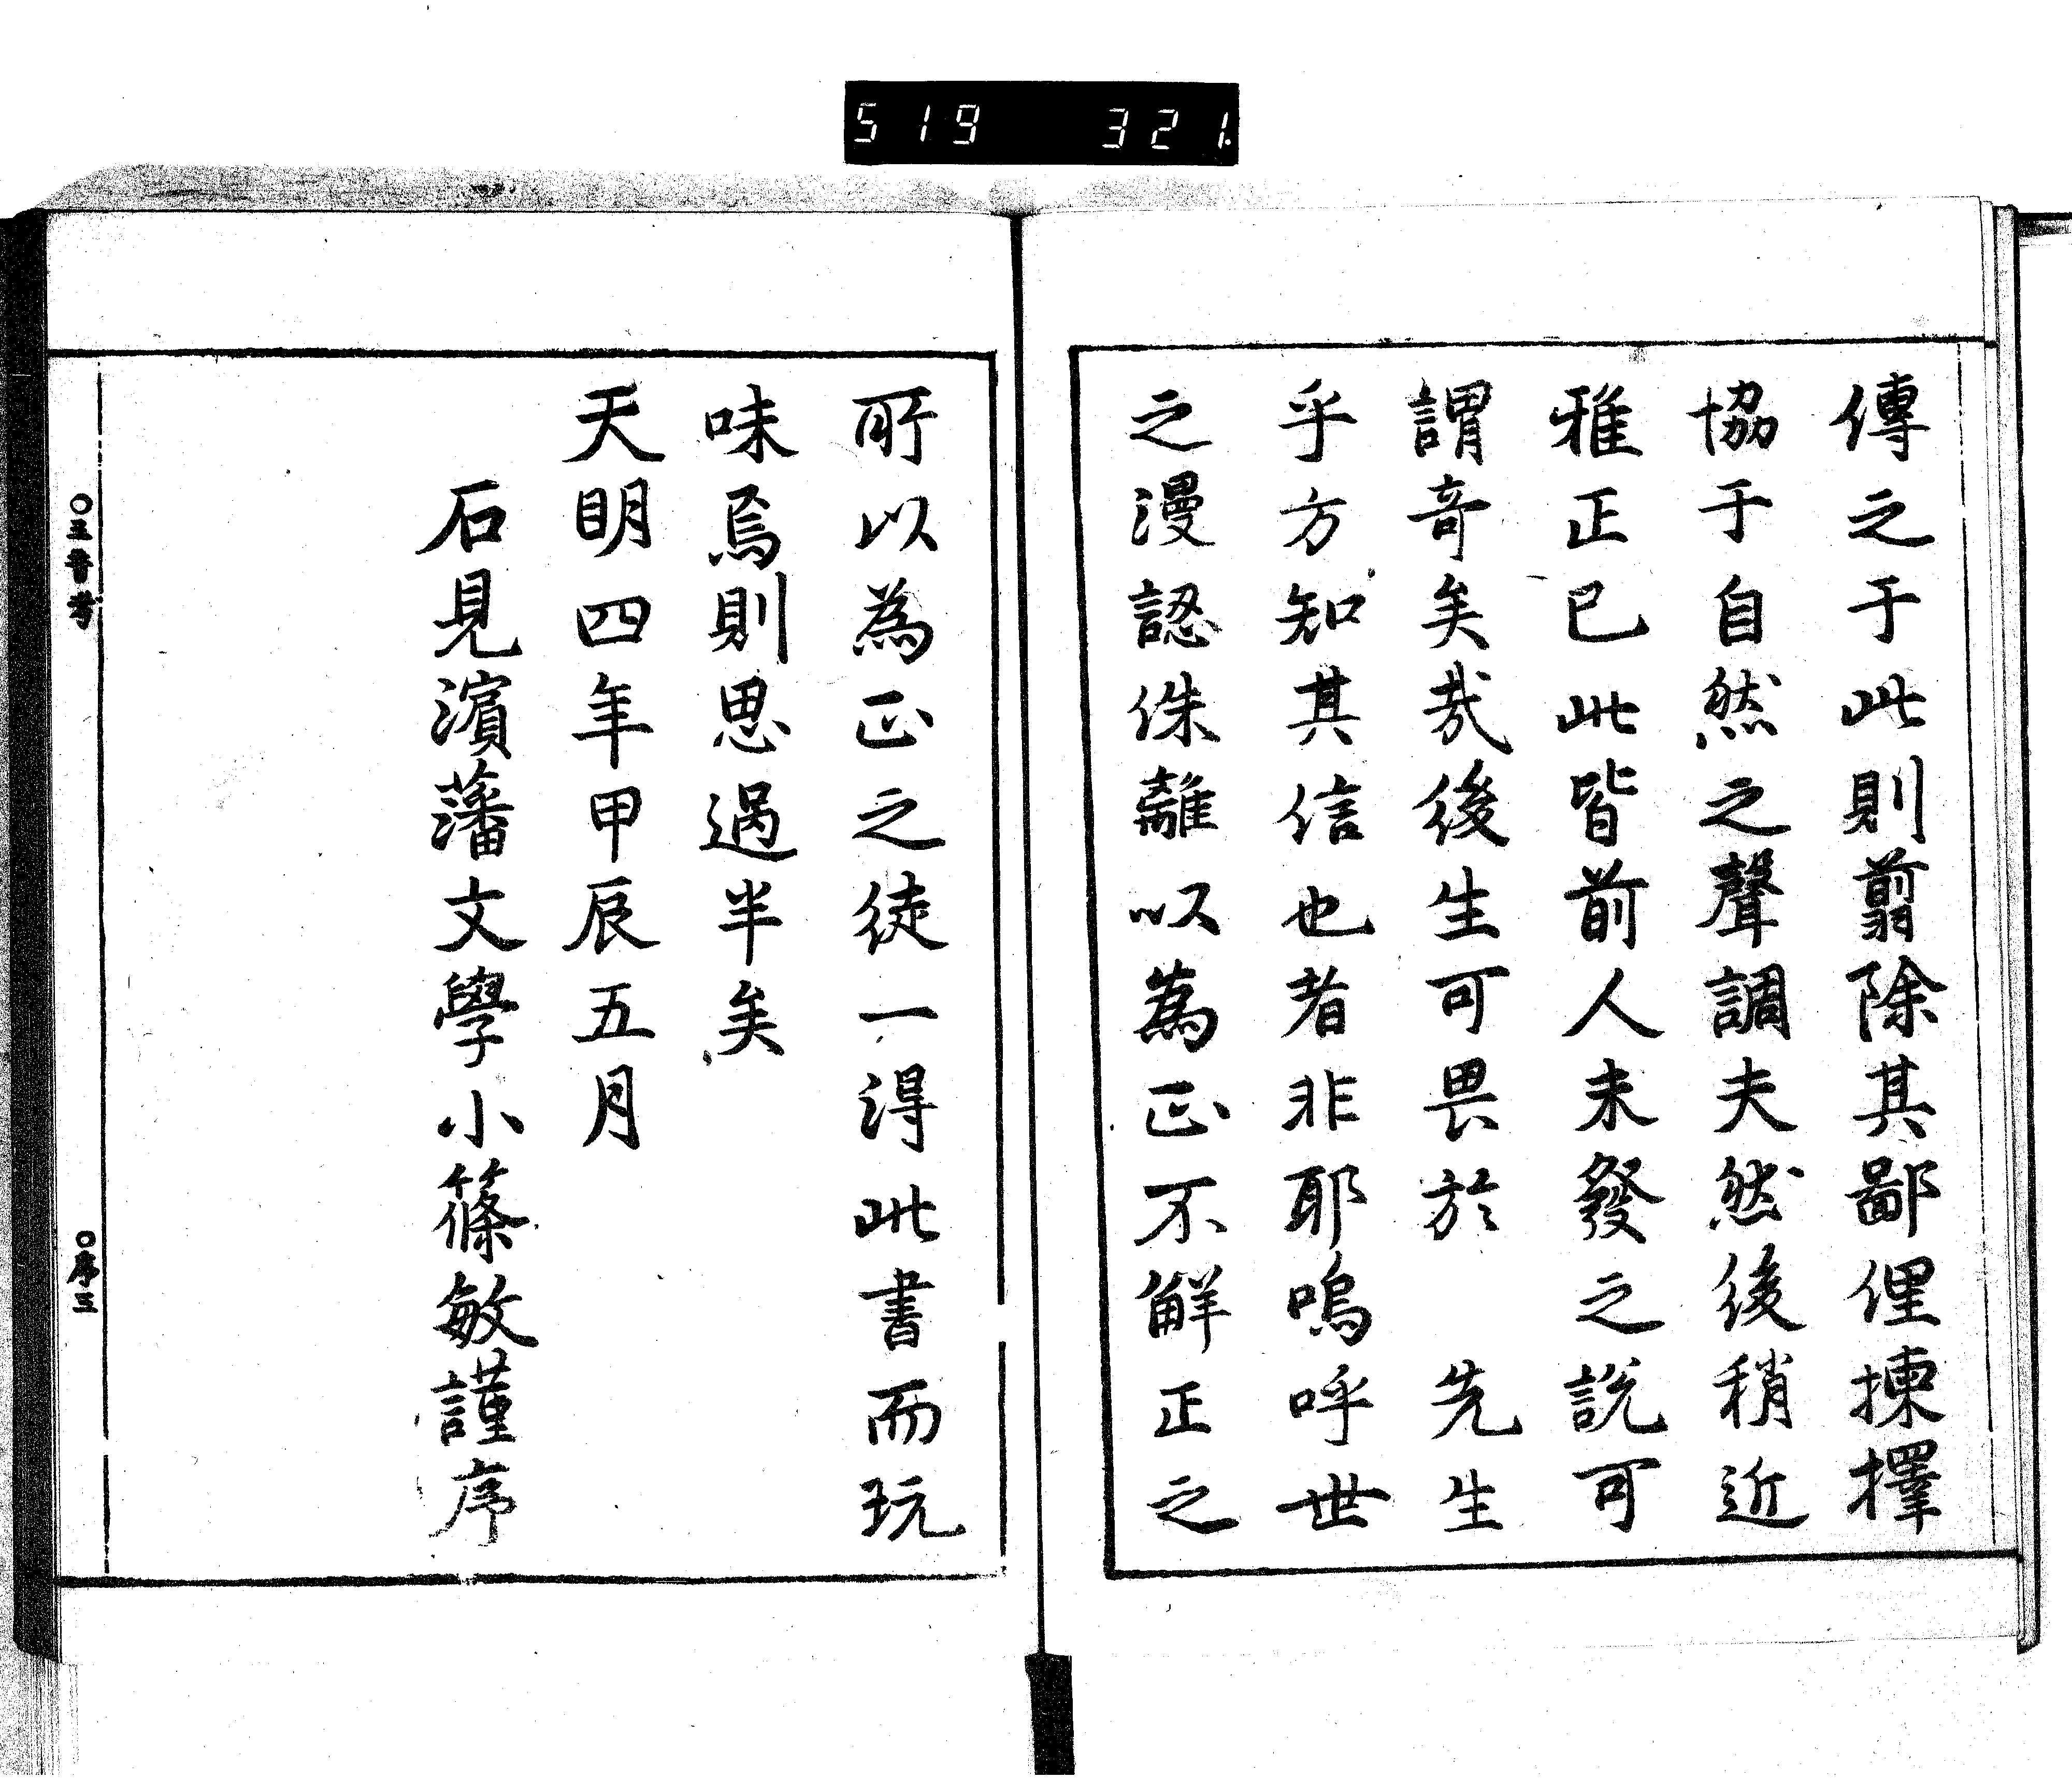 519 321.
傳之于此則翦除其鄙俚揀擇
協于自然之聲調夫然後稍近
雅正已此皆前人未發之説可
謂奇矣哉後生可畏於　先生
乎方知其信也者非耶嗚呼世
之漫認侏離以為正不解正之
所以為正之徒一得此書而玩
味焉則思過半矣
天明四年甲辰五月
石見濱藩文學小篠敏謹序
〇五音考
〇序三